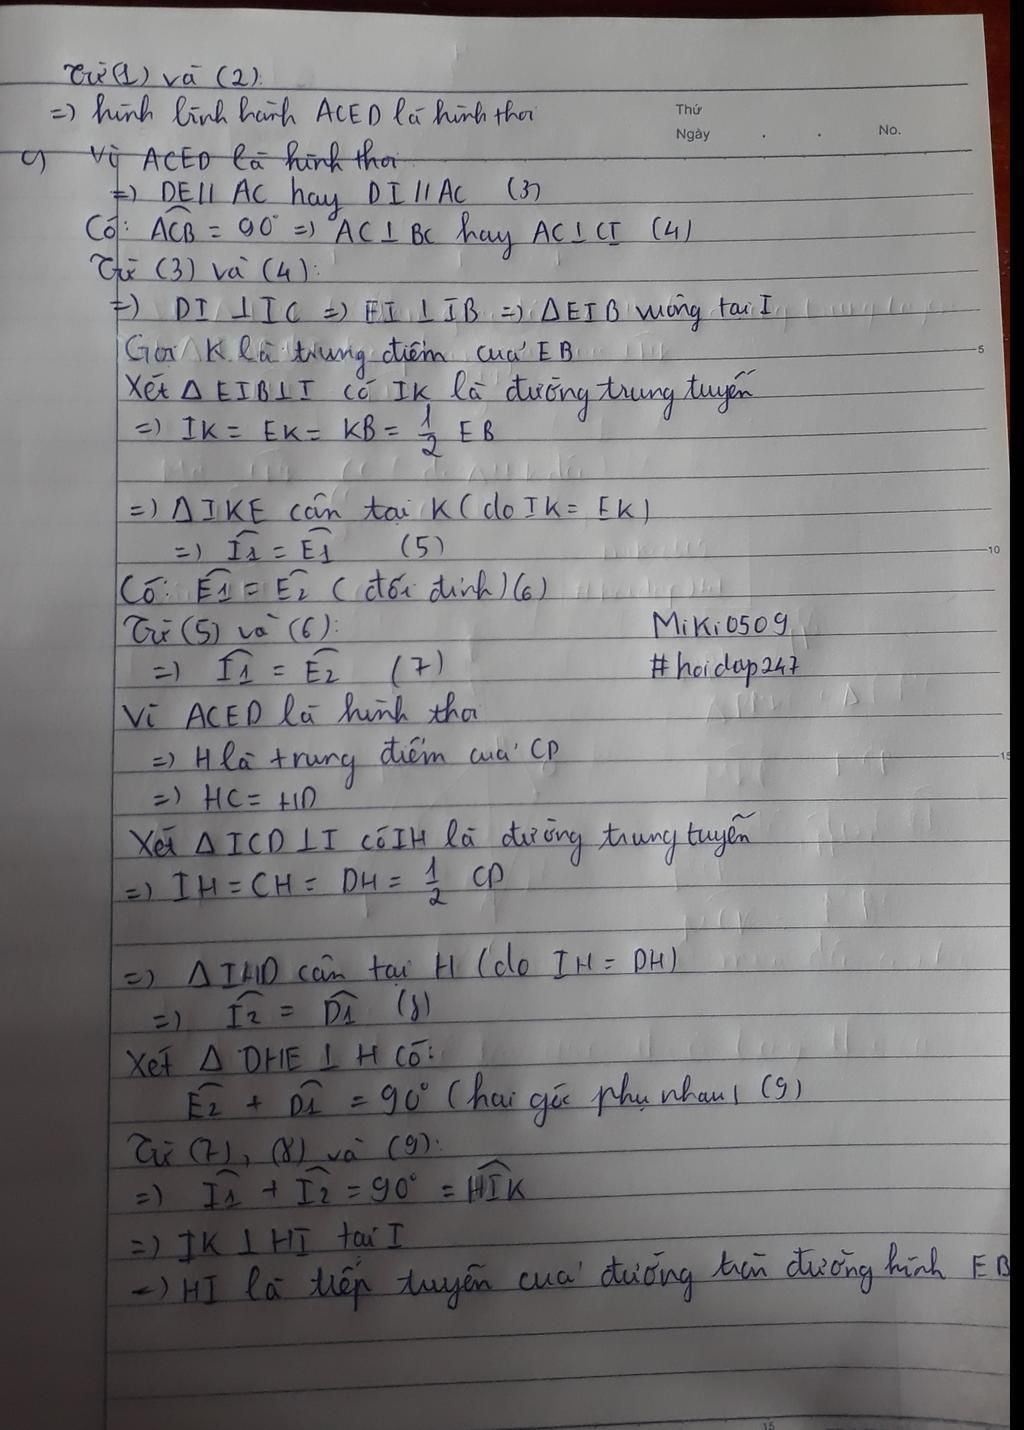 Từ (1) và (2):
=) hình bình hành ACED là hình thoi
Thứ
Ngày . . No.
c) Vì ACED là hình thoi
=) DE // AC hay DI // AC (3)
Có: ACB = 90° =) AC ⊥ BC hay AC ⊥ CI (4)
Từ (3) và (4):
=) DI ⊥ IC =) EI ⊥ IB =) Δ EIB vuông tại I
Gọi K là trung điểm của EB
5
Xét Δ EIB ⊥ I có IK là đường trung tuyến
=) IK = EK = KB = 1/2 EB
=) Δ IKE cân tại K (do IK = EK)
=) I1 = E1 (5)
10
Có: E1 = E2 (đối đỉnh) (6)
Từ (5) và (6):
MiKi0509
=) I1 = E2 (7)
#hoidap247
Vì ACED là hình thoi
=) H là trung điểm của CD
15
=) HC = HD
Xét Δ ICD ⊥ I có IH là đường trung tuyến
=) IH = CH = DH = 1/2 CD
=) Δ IHD cân tại H (do IH = DH)
=) I2 = D1 (8)
Xét Δ DHE ⊥ H có:
E2 + D1 = 90° (hai góc phụ nhau) (9)
Từ (7), (8) và (9):
=) I1 + I2 = 90° = HIK
=) IK ⊥ HI tại I
=) HI là tiếp tuyến của đường tròn đường kính EB
15